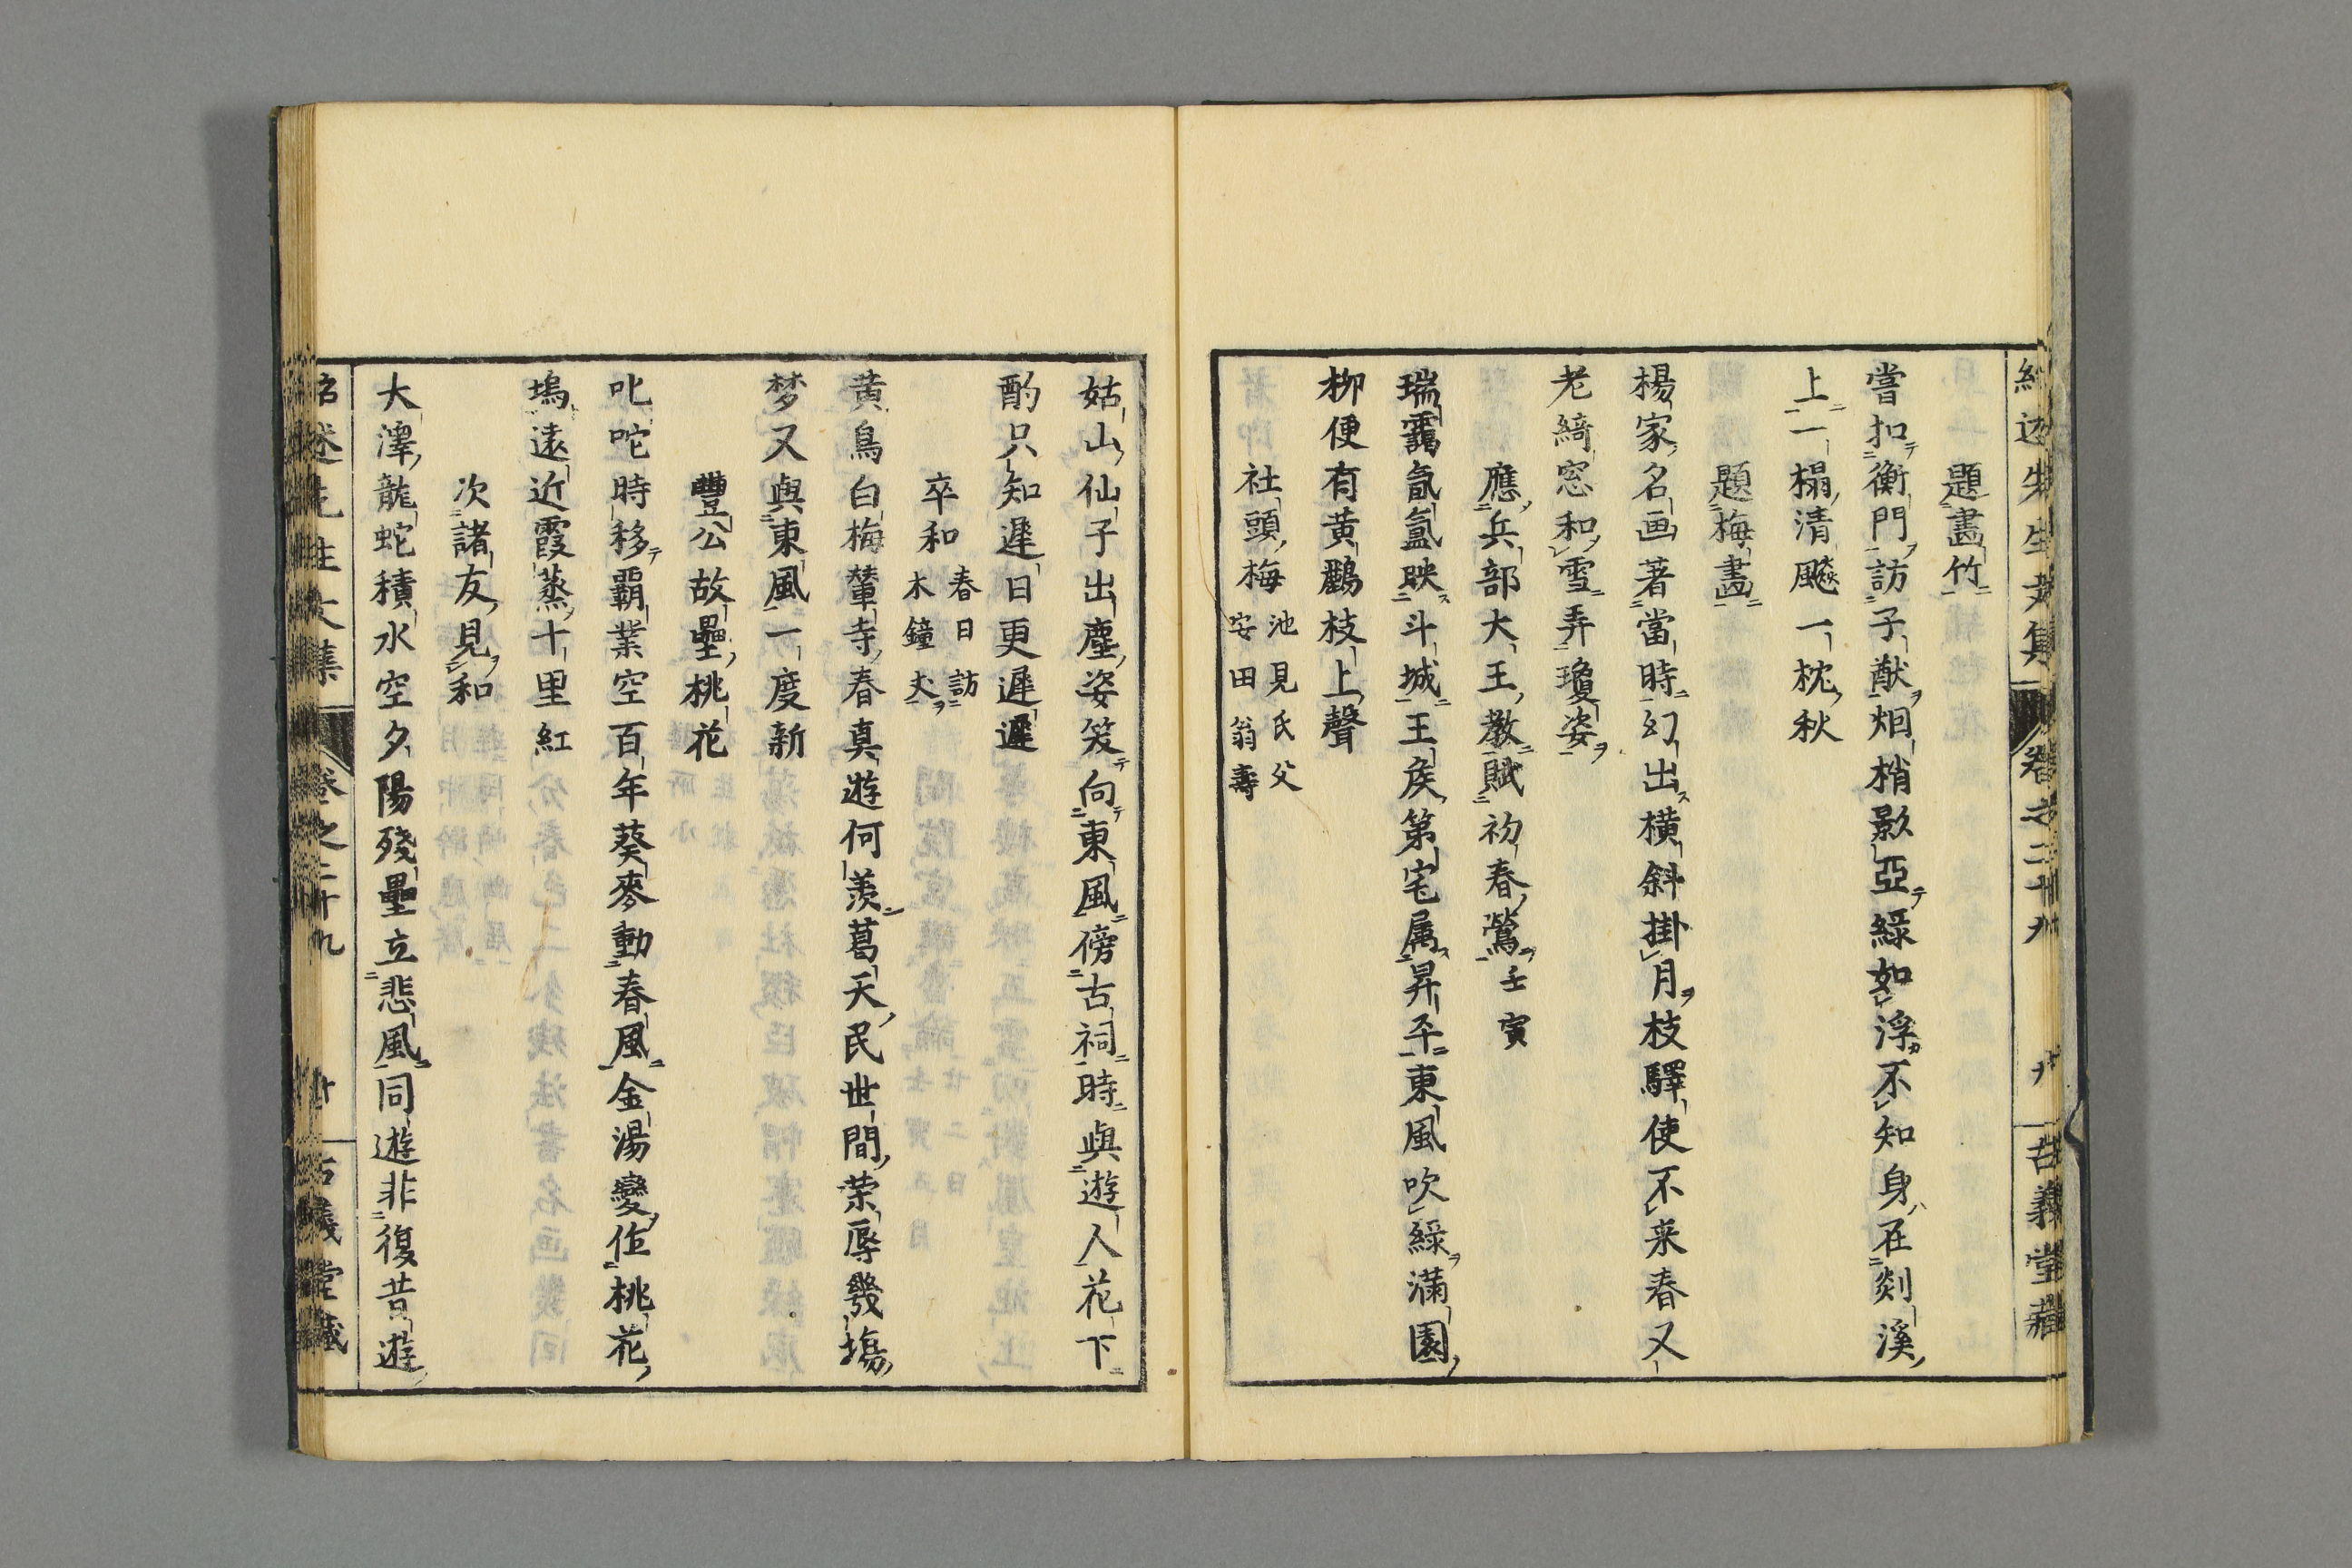 紹述先生文集 卷之二十九 九 古義堂藏
題畵竹
嘗扣衡門訪子猷烟梢影亞綠如浮不知身在剡溪
上一榻清飈一枕秋
題梅畵
楊家名画著當時幻出橫斜掛月枝驛使不来春又
老綺窓和雪弄瓊姿
應兵部大王教賦初春鶯壬寅
瑞靄氤氳映斗城王侯第宅属昇平東風吹綠滿園
柳便有黄鸝枝上聲
社頭梅池見氏父
安田翁壽
姑山仙子出塵姿笑向東風傍古祠時與遊人花下
酌只知遲日更遲遲
卒和春日訪
木鐘丈
黄鳥白梅輦寺春真遊何羨葛天民世間荣辱幾塲
梦又與東風一度新
豐公故壘桃花
叱咤時移覇業空百年葵麥動春風金湯變作桃花
塢遠近霞蒸十里紅
次諸友見和
大澤龍蛇積水空夕陽殘壘立悲風同遊非復昔遊
紹述先生文集 卷之二十九 十 古義堂藏